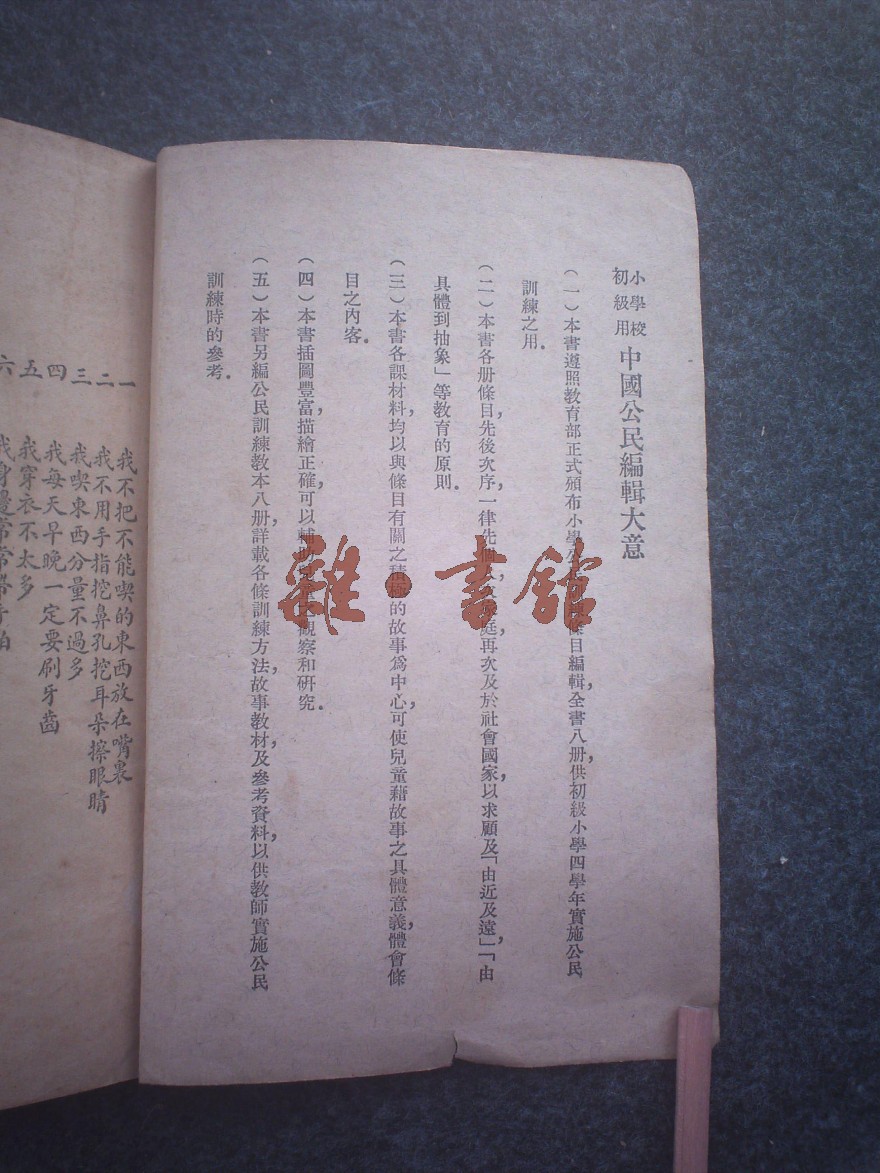 小學校
初級用
中國公民編輯大意
（一）本書遵照教育部正式頒布小學公民訓練條目編輯，全書八册，供初級小學四學年實施公民
訓練之用．
（二）本書各册條目先後次序，一律先個，庭，再次及於社會國家，以求顧及「由近及遠」，「由
具體到抽象」等教育的原則．
（三）本書各課材料，均以與條目有關之積極的故事爲中心，可使兒童藉故事之具體意義，體會條
目之內容．
（四）本書插圖豐富，描繪正確，可以輔助觀察和研究．
（五）本書另編公民訓練教本八册，詳載各條訓練方法，故事教材，及參考資料，以供教師實施公民
訓練時的參考．
雜·書舘
一 我不把不能喫的東西放在嘴裏
二 我不用手指挖鼻孔挖耳朵擦眼睛
三 我喫東西分量不過多
四 我每天早晚一定要刷牙齒
五 我穿衣不太多
六 我身邊常常帶手帕